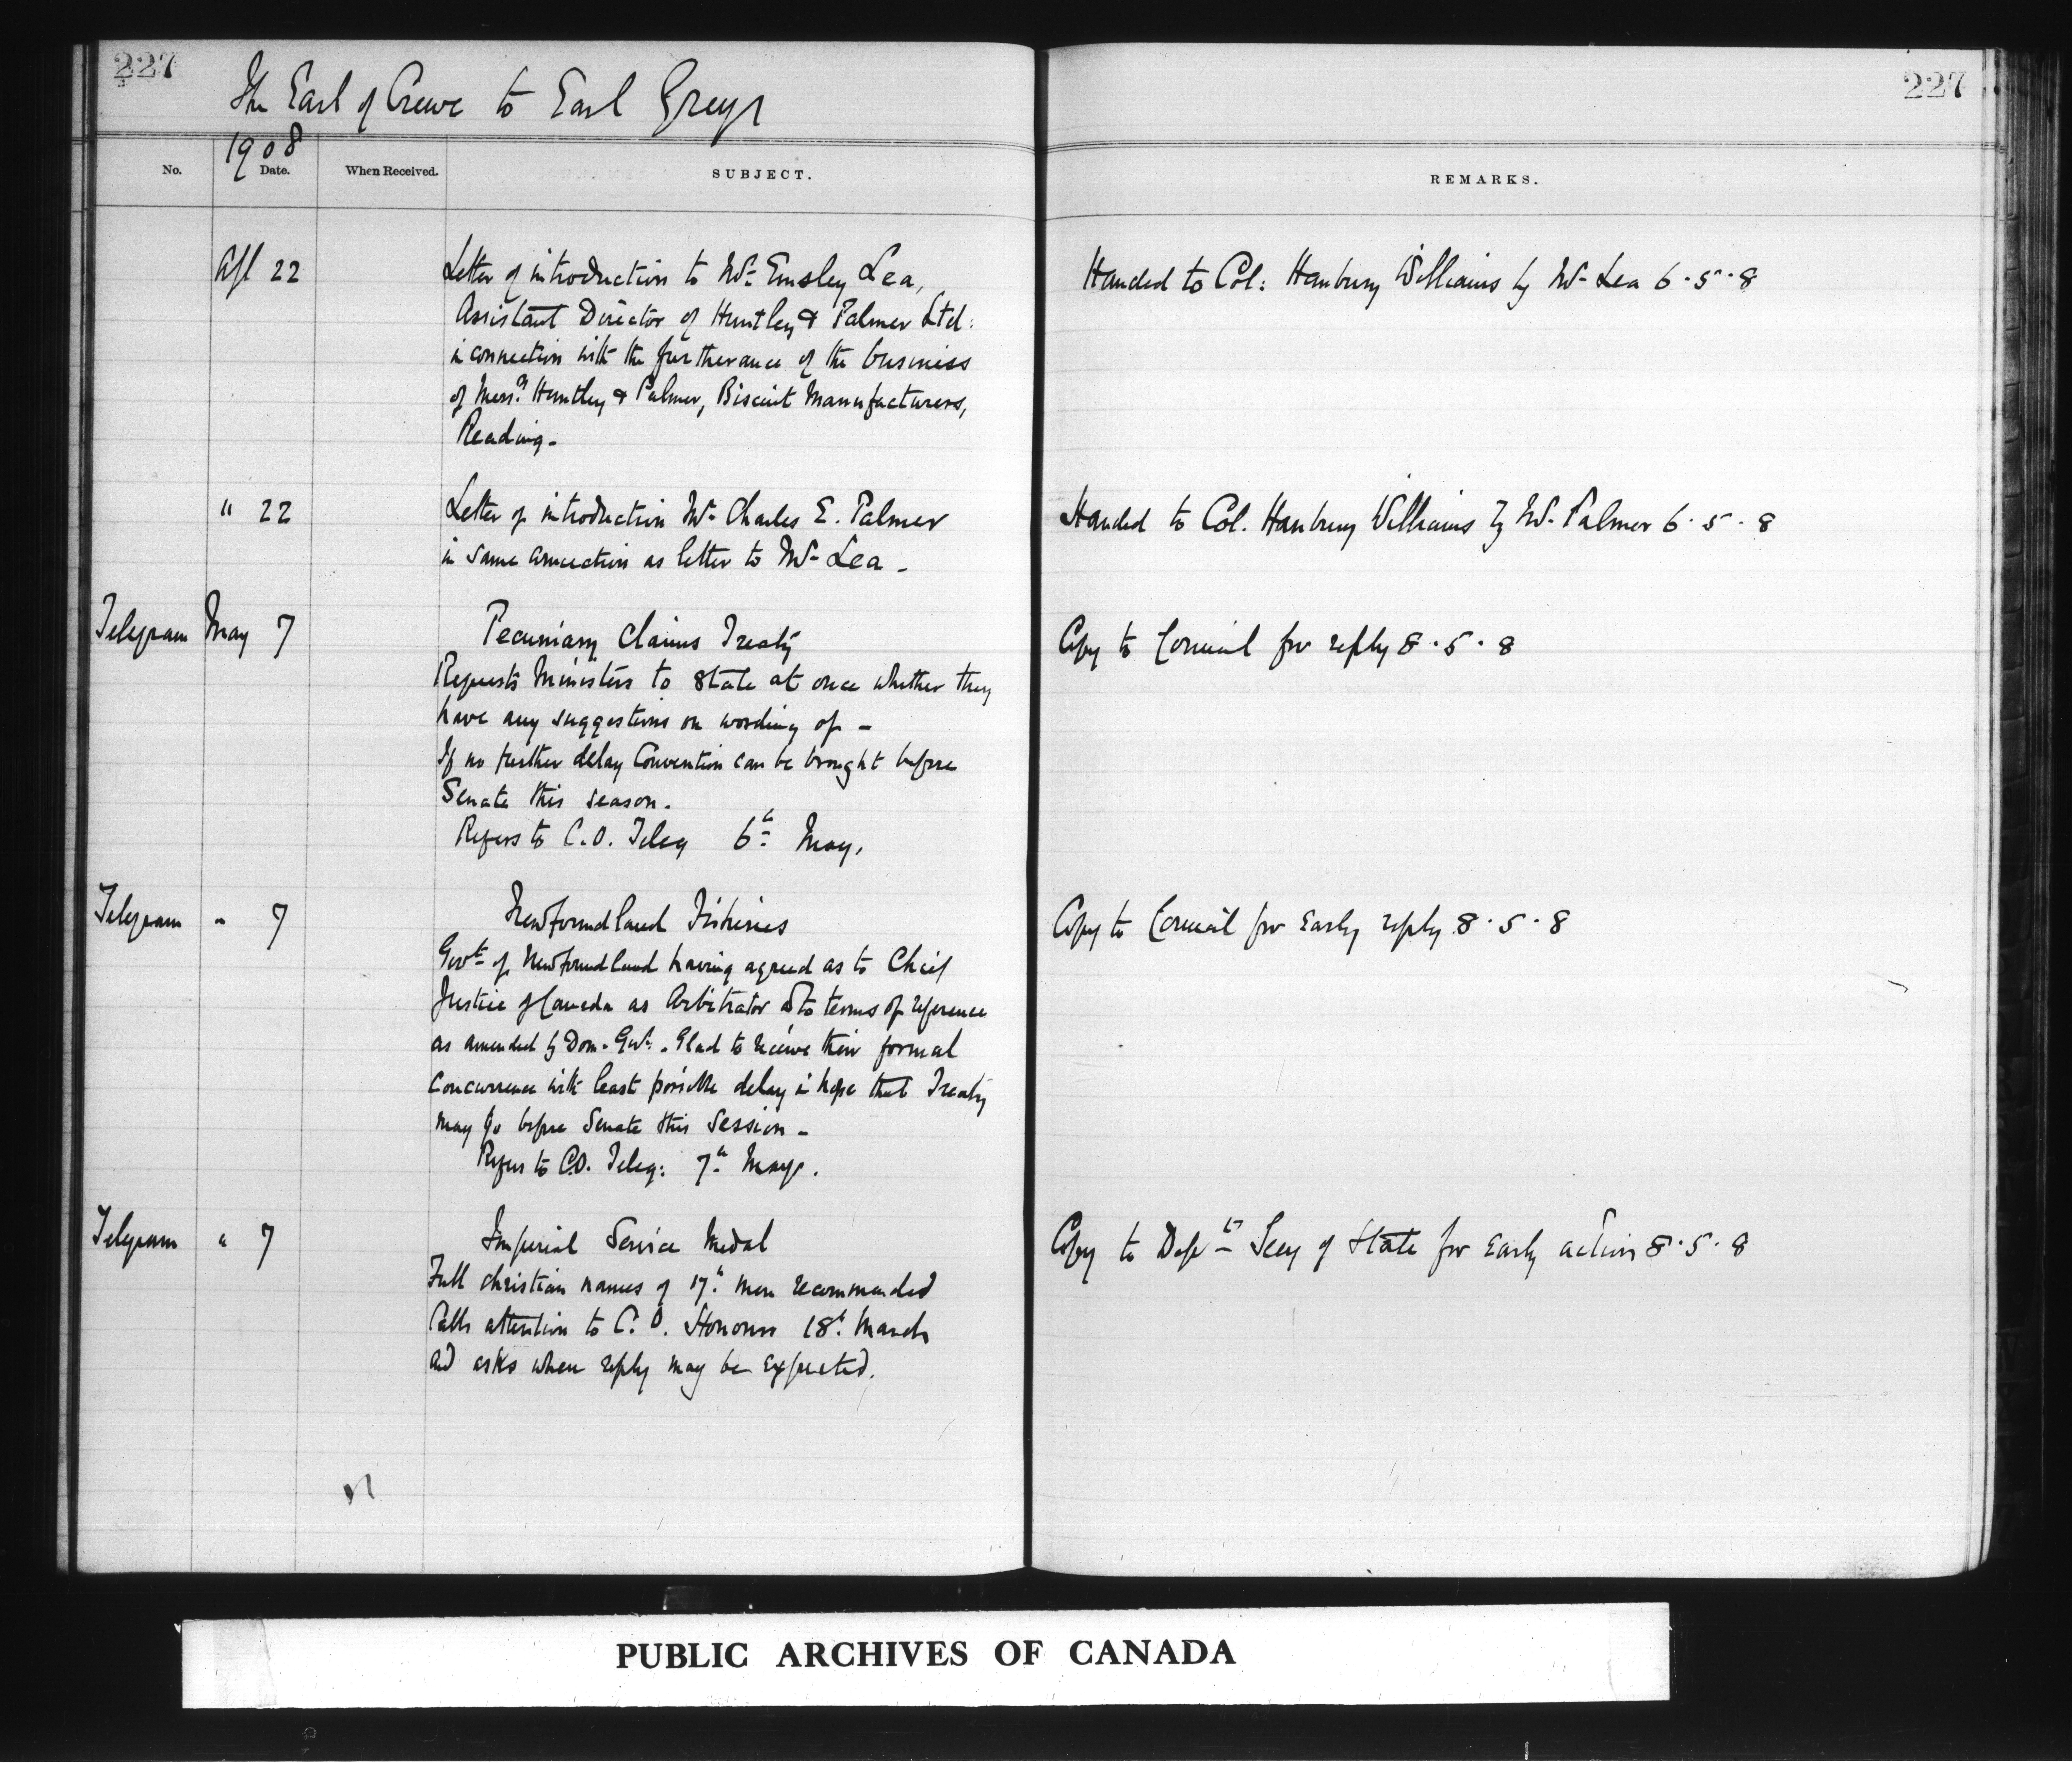 227
The Earl of Crewe to Earl Grey
1908
No. Date. When Received. SUBJECT.
Apl 22 Letter of introduction to Mr Emsley Lea,
Assistant Director of Huntley & Palmer Ltd:
in connection with the furtherance of the business
of Messrs Huntley & Palmer, Biscuit Manufacturers,
Reading -
" 22 Letter of introduction Mr Charles E. Palmer
in same connection as letter to Mr Lea -
Telegram May 7 Pecuniary Claims Treaty
Requests Ministers to state at once whether they
have any suggestions on wording of -
If no further delay Convention can be brought before
Senate this season.
Refers to C.O. Teleg 6th May.
Telegram " 7 Newfoundland Fisheries
Govt of Newfoundland having agreed as to Chief
Justice of Canada as Arbitrator & to terms of reference
as amended by Dom. Govt. Glad to receive their formal
concurrence with least possible delay in hope that Treaty
may go before Senate this Session -
Refers to C.O. Teleg: 7th May.
Telegram " 7 Imperial Service Medal
Full christian names of 17 men recommended
Calls attention to C.O. Honours 18th March
and asks when reply may be expected.
227
REMARKS.
Handed to Col: Hanbury Williams by Mr Lea 6.5.8
Handed to Col. Hanbury Williams by Mr Palmer 6.5.8
Copy to Council for reply 8.5.8
Copy to Council for early reply 8.5.8
Copy to Dept Secy of State for early action 8.5.8
PUBLIC ARCHIVES OF CANADA